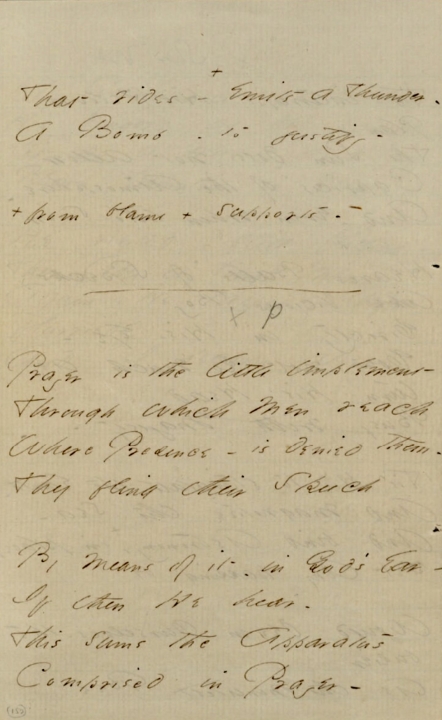 +
That rides - Emits a Thunder -
A Bomb - to justify -
+ from + supports -
+ P
Prayer is the little implement
Through which Men reach
Where Presence - is denied them -
They fling their Speech
By means of it - in God's Ear -
If then He hear -
This sums the Apparatus
Comprised in Prayer -